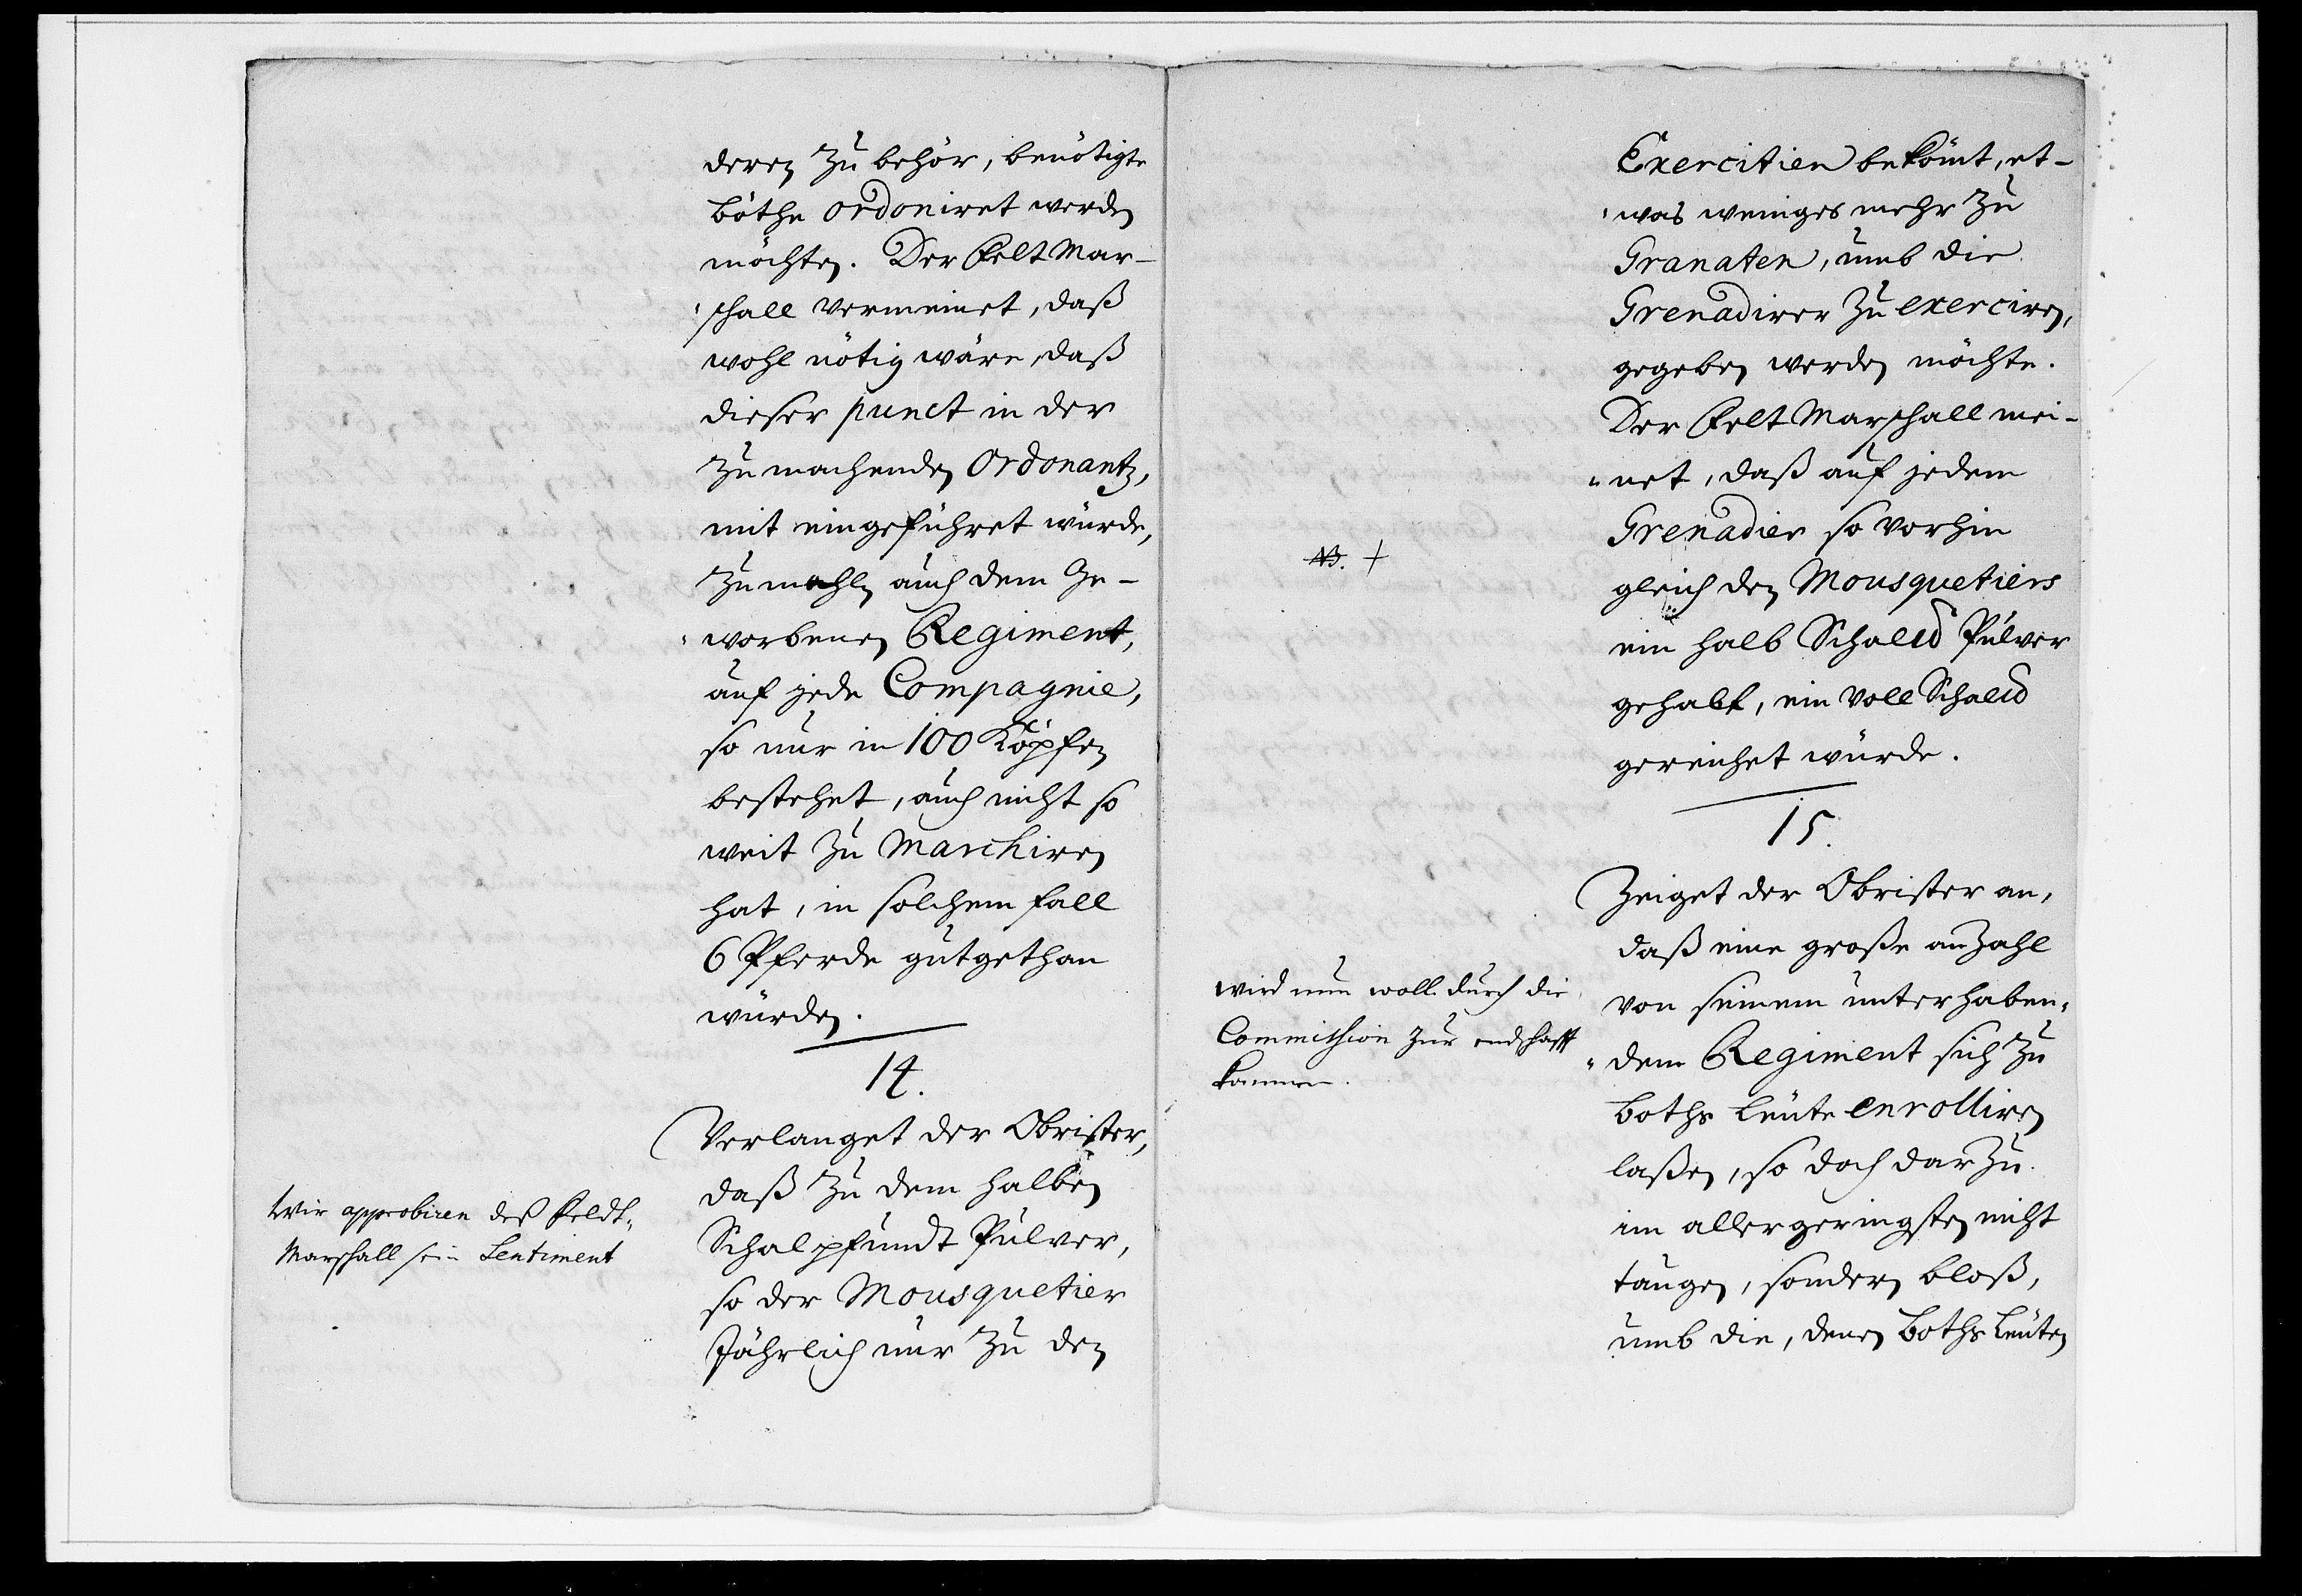 deren Zu behör, benötigte
böthe ordoniret werden
möchten. Der Felt Mar-
schall vermeinet, daß
wohl nötig wäre, daß
dieser punct in der
Zu machenden Ordonantz,
mit eingeführet würde,
Zumahlen auch dem Ge-
worbenen Regiment,
auf jede Compagnie,
so nur in 100 Köpfen
bestehet, auch nicht so
weit Zu Marchiren
hat, in solchem fall
6 Pferde gutgethan
würden.
14.
Verlanget der Obrister,
daß Zu dem halben
Schalpfundt Pulver,
so der Mousquetier
Jährlich nur Zu den
Wir approbiren deß Feldt-
Marschall sein Sentiment
Exercitien bekömt, et-
was weniges mehr Zu
Granaten, umb die
Grenadirer Zu exerciren,
gegeben werden möchte.
Der Felt Marschall mei-
net, daß auf jedem
Grenadier so vorhin
gleich den Mousquetiers
ein halb Schal℔ Pulver
gehabt, ein voll Schal℔
gereichet würde.
NB. +
15.
Zeiget der Obrister an,
daß eine große anZahl
von seinem unterhaben-
dem Regiment sich Zu
boths leute enrolliren
laßen, so doch darZu
im allergeringsten nicht
taugen, sondern bloß,
umb die, denen boths leuten
wird nun woll durch die
Commission zur endschafft
kommen.